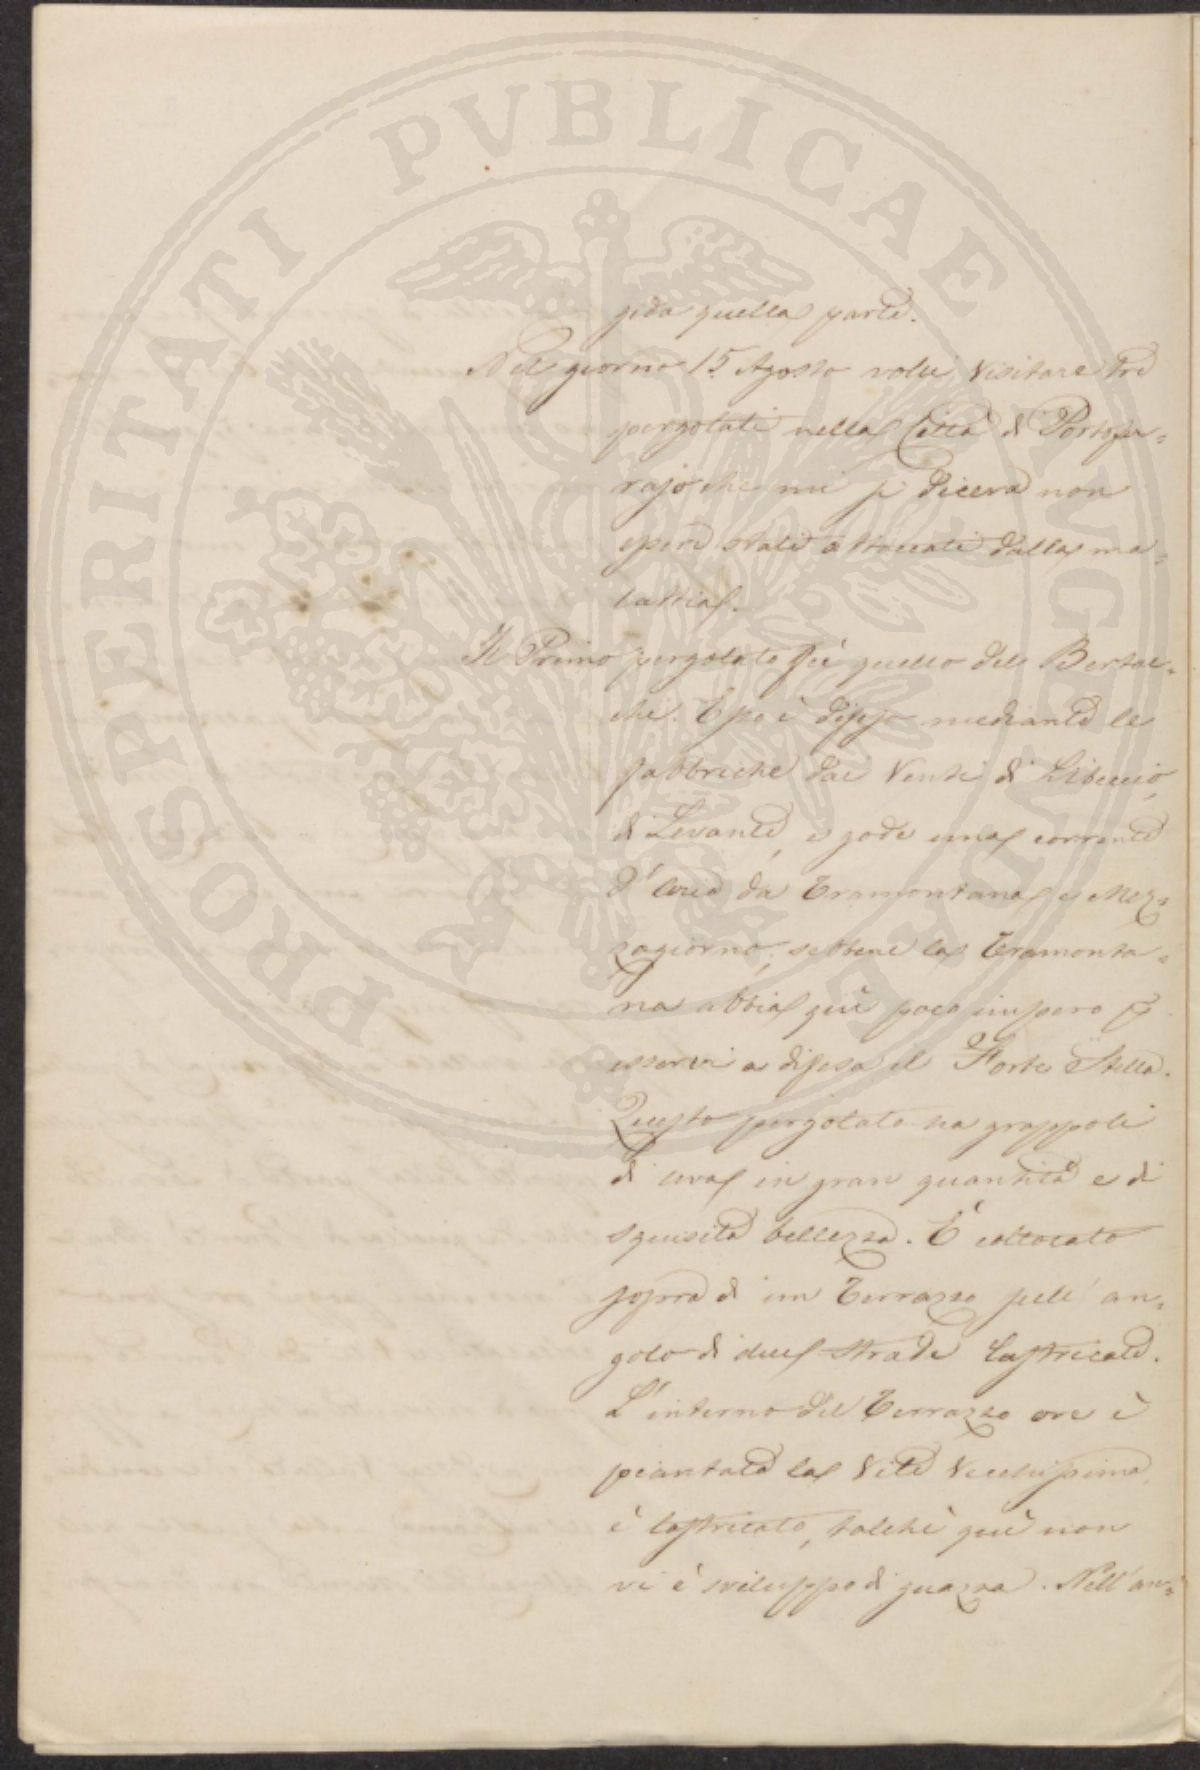 PROSPERITATI PVBLICAE AVGENDAE
gida quella parte.
Nel giorno 15 Agosto volli visitare tre
pergolati nella Città di Portofer=
rajo che mi si diceva non
essere stati attaccati dalla ma=
lattia.
Il Primo pergolato fù quello del Bertac=
chi. Esso è difeso mediante le
fabbriche dai Venti di Libeccio,
di Levante, e gode una corrente
d'aria da Tramontana e Mez=
zogiorno, sebbene la Tramonta=
na abbia quì poco impero p
esservi a difesa il Forte Stella.
Questo pergolato ha grappoli
di uva in gran quantità e di
squisita bellezza. È collocato
sopra di un Terrazzo sull'an=
golo di due strade lastricate.
L'interno del Terrazzo ove è
piantata la Vite Vecchissima,
è lastricato, talchè quì non
vi è sviluppo di guazza. Nell'an=